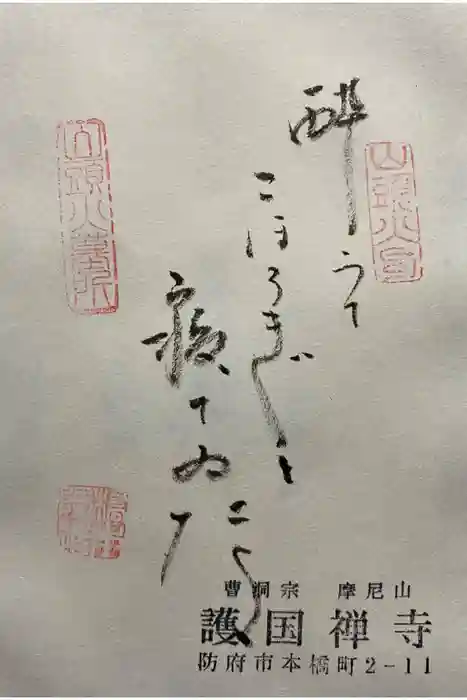 酔うて
こほろぎと
寝てゐたよ
山頭火
山頭火墓所
曹洞宗 摩尼山
護国禅寺
防府市本橋町2-11